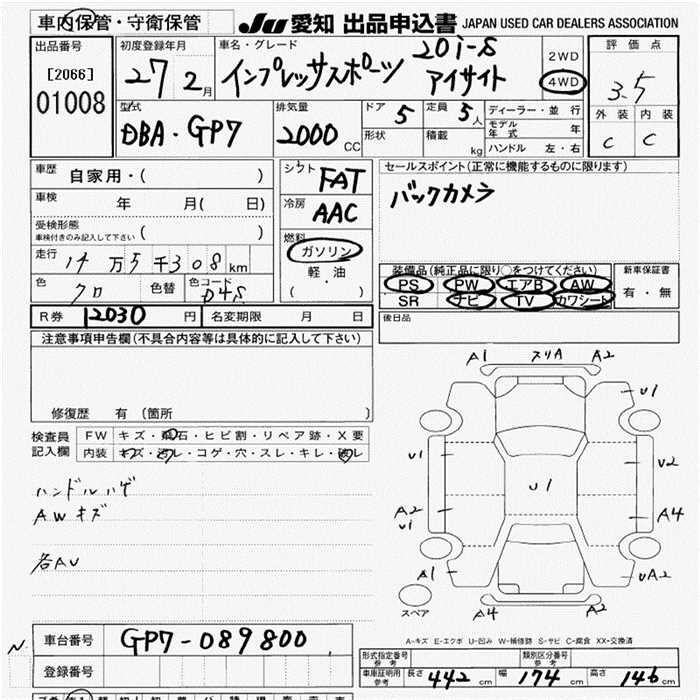 車内保管・守衛保管 JU 愛知 出品申込書 JAPAN USED CAR DEALERS ASSOCIATION
出品番号 初度登録年月 車名・グレード 20i-S 2WD 評価点
[2066] 27 2月 インプレッサスポーツ アイサイト 4WD 3.5
01008 型式 排気量 ドア 5 定員 5人 ディーラー・並行 外装 内装
DBA・GP7 2000 CC 形状 積載 kg モデル年式 年 C C
ハンドル 左・右
車歴 自家用・( ) シフト FAT セールスポイント(正常に機能するものに限ります)
車検 年 月( 日) 冷房 AAC バックカメラ
受検形態
車検付きのみ記入して下さい ( ) 燃料
走行 14万5千308km ガソリン 装備品(純正品に限り○をつけてください) 新車保証書
色 クロ 色替 色コード D4S 軽・油 PS PW エアB AW 有・無
( ・ ) SR ナビ TV カワシート
R券 12030 円 名変期限 月 日 後日品
注意事項申告欄(不具合内容等は具体的に記入して下さい)
修復歴 有 (箇所 )
検査員 FW キズ・飛石・ヒビ割・リペア跡・X要
記入欄 内装 キズ・汚レ・コゲ・穴・スレ・キレ・破レ
ハンドルハゲ
AWキズ
各AU
A1 スリA A2
U1
U2
U1
A2
U1
A4
A1 UA2
スペア A4 A2
A-キズ E-エクボ U-凹み W-補修跡 S-サビ C-腐食 XX-交換済
N 車台番号 GP7-089800
登録番号
形式指定番号 参考 類別区分番号 参考
車庫証明用 参考 長さ 442 cm 幅 174 cm 高さ 146 cm